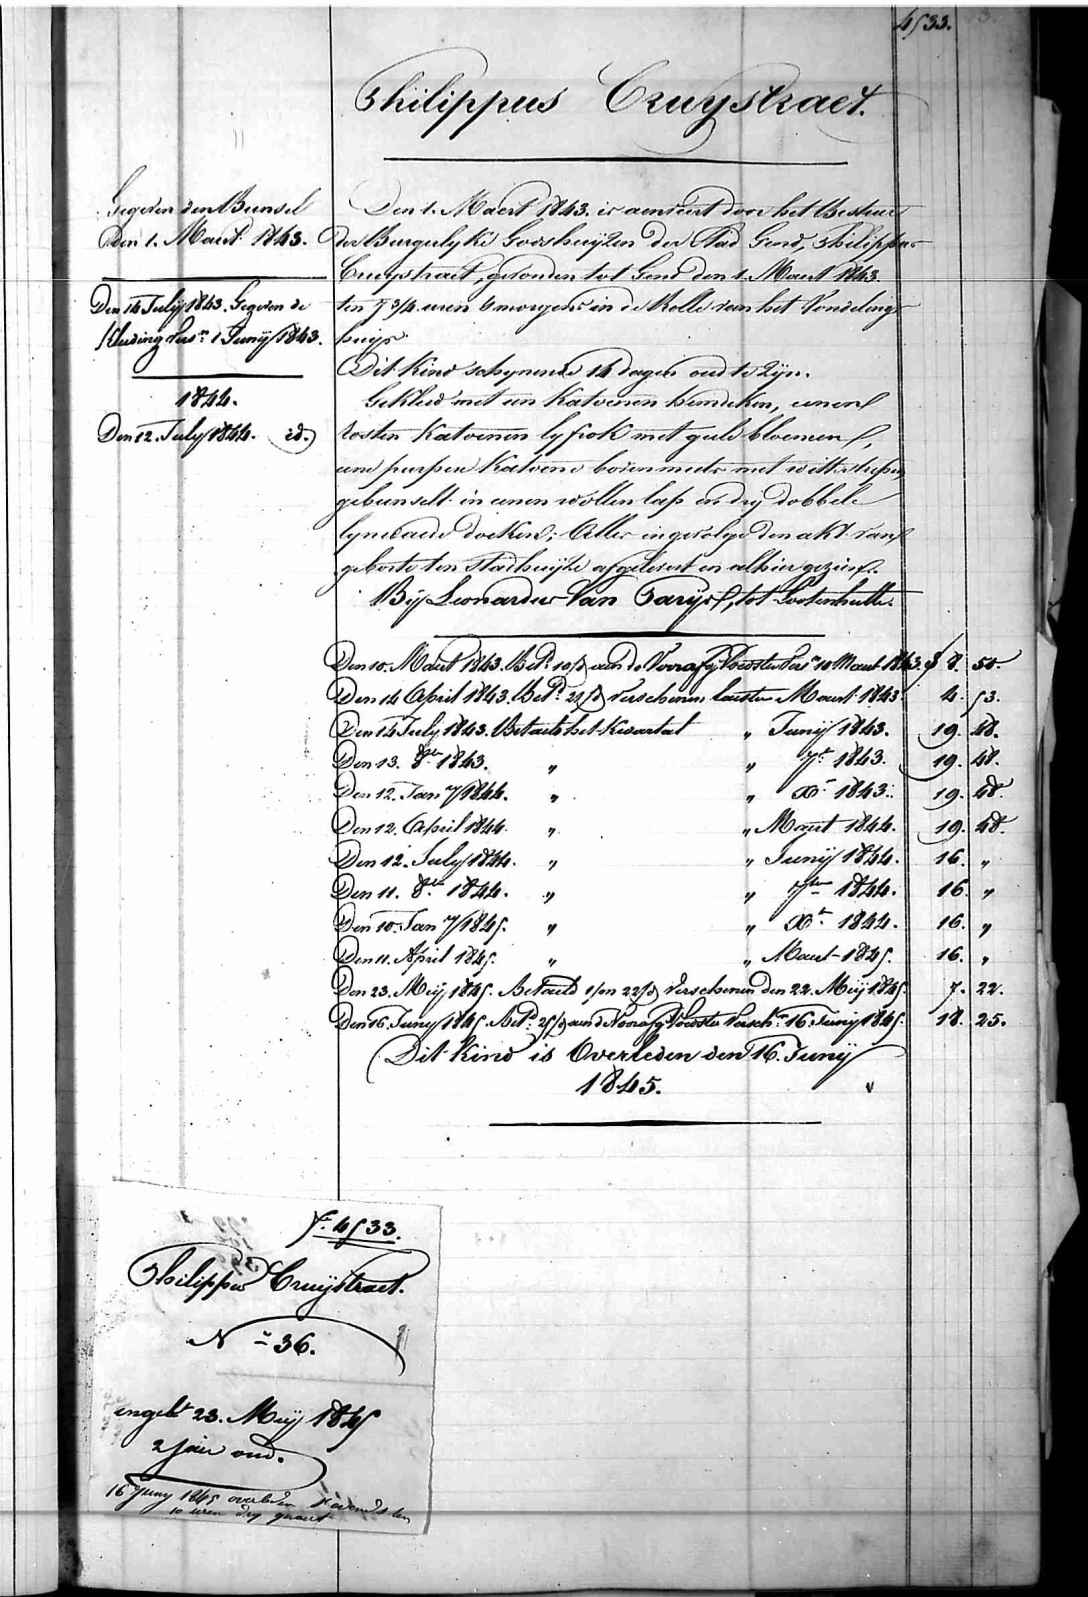 4533.
Philippus Cruystraet.
Gegeven den Bunsel
den 1. Maert 1843.
Den 14 July 1843. Gegeven de
kleeding vers.n 1 Junij 1843.
1844.
Den 12. July 1844. id.
Den 1. Maert 1843. is aenveert door het Bestuer
der Burgerlyke Godshuijzen der Stad Gend, Philippus
Cruystraet, gevonden tot Gend den 1. Maert 1843.
ten 7 3/4 uren 's morgens in de Rolle van het Vondeling
huijs.
Dit Kind schynende 14 dagen oud te zijn.
Gekleed met een Katoenen hemdeken, eenen
rosten Katoenen lyfrok met geele bloemen,
eene purpere Katoene bovenmuts met witte strepen,
gebunselt in eenen wollen lap en dry dobbele
lynwaede doeken; Alles ingevolge den akt van
geboorte ten Stadhuijze afgelevert en alhier gezien.
Bij Leonardus Van Parijs, tot Lootenhulle.
Den 10. Maert 1843. Bet.d 10/d aen de Voorafg. Voedster vers.n 10 Maert 1843. f 8. 50.
Den 14 April 1843. Bet.d 21/d verschenen laasten Maert 1843. 4. 53.
Den 14 July 1843. Betaelt het Kwartael " Junij 1843. 19. 48.
Den 13. 8ber 1843. " " 7r 1843. 19. 48.
Den 12. Jany 1844. " " Xr 1843. 19. 48.
Den 12. April 1844. " " Maert 1844. 19. 48.
Den 12. July 1844. " " Junij 1844. 16. "
Den 11. 8ber 1844. " " 7ber 1844. 16. "
Den 10. Jany 1845. " " Xr 1844. 16. "
Den 11. April 1845. " " Maert 1845. 16. "
Den 23. Meij 1845. Betaeld 1/m 22/d verschenen den 22. Meij 1845. 7. 22.
Den 16. Juny 1845. Bet.d 25/d aen de Voorafg. Voedster versch.n 16. Junij 1845. 18. 25.
Dit kind is Overleden den 16. Junij
1845.
F.o 4533.
Philippus Cruijstraet.
N.o 36.
ingeb.t 23. Meij 1845
2 jaer oud.
16 Juny 1845 overleden 's avonds ten
10 uren dry quaert